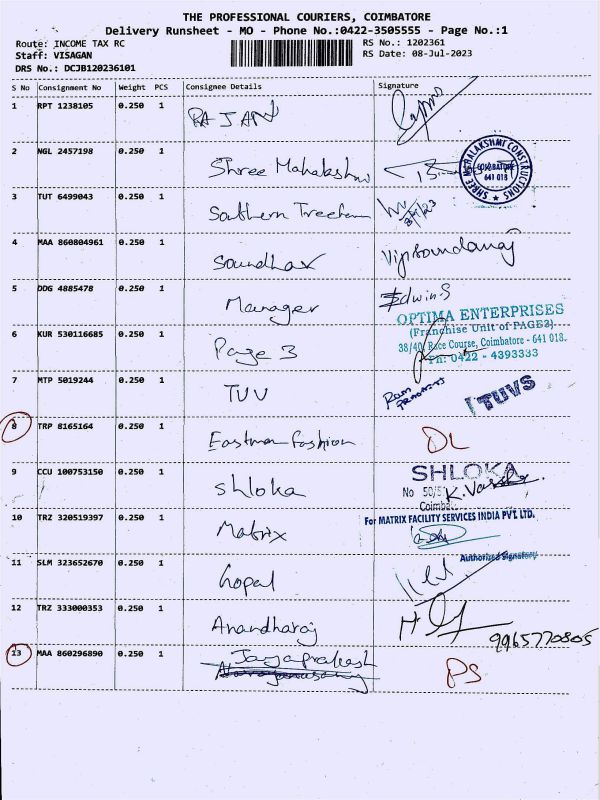 THE PROFESSIONAL COURIERS, COIMBATORE
Delivery Runsheet - MO - Phone No.:0422-3505555 - Page No.:1
Route: INCOME TAX RC
RS No.: 1202361
Staff: VISAGAN
RS Date: 08-Jul-2023
DRS No.: DCJB120236101
S No Consignment No Weight PCS Consignee Details Signature
1 RPT 1238105 0.250 1 RAJAN
2 NGL 2457198 0.250 1 Shree Mahalakshmi
SHREE MAHALAKSHMI CONSTRUCTIONS
COIMBATORE
641 018
3 TUT 6499043 0.250 1 Southern Treefarm
8/7/23
4 MAA 860804961 0.250 1 Soundhar
5 DDG 4885478 0.250 1 Manager Edwin-S
OPTIMA ENTERPRISES
(Franchise Unit of PAGE3)
6 KUR 530116685 0.250 1 Page 3
38/40, Race Course, Coimbatore - 641 018.
Ph: 0422 - 4393333
7 MTP 5019244 0.250 1 TUV
Ram
TUVS
8 TRP 8165164 0.250 1 Eastman Fashion DL
9 CCU 100753150 0.250 1 Shloka
SHLOKA
No 50/5 K.
Coimba
10 TRZ 320519397 0.250 1 Matrix
For MATRIX FACILITY SERVICES INDIA PVT. LTD.
Authorized Signatory
11 SLM 323652670 0.250 1 Gopal
12 TRZ 333000353 0.250 1 Anandharaj
9965770805
13 MAA 860296890 0.250 1 Jayaprakash PS